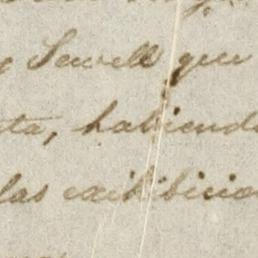 y Sewell que
ta, habiendo
las exihbicio